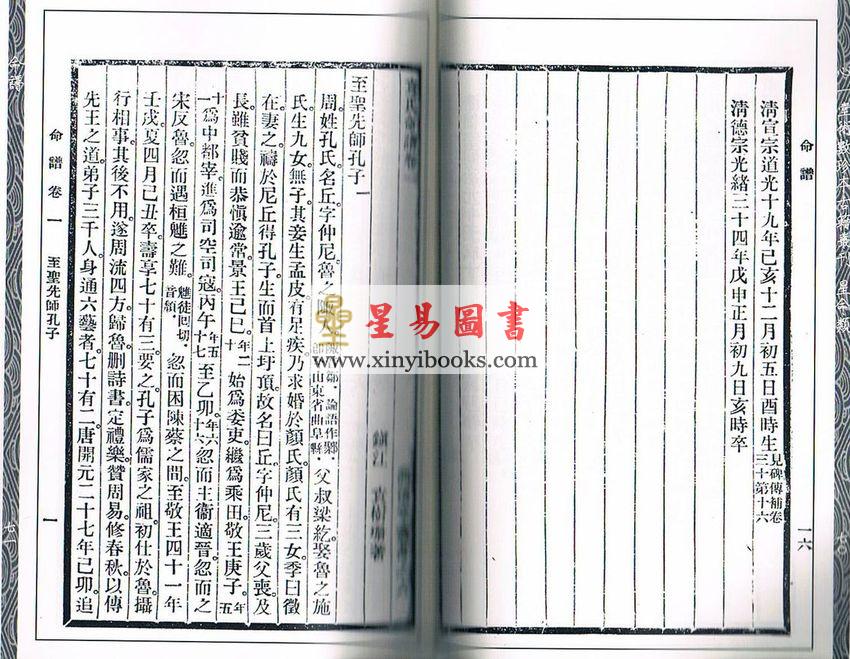 命譜
一六
清宣宗道光十九年己亥十二月初五日酉時生見碑傳補卷三十第十六
清德宗光緒三十四年戊申正月初九日亥時卒
鎮江 袁樹珊著
至聖先師孔子一
周。姓孔氏。名丘。字仲尼。魯之
論語作鄹。
山東省曲阜縣。
父叔梁紇。娶魯之施
氏。生九女。無子。其妾生孟皮。有足疾。乃求婚於顏氏。顏氏有三女。季曰徵
在。妻之。禱於尼丘。得孔子。生而首上圩頂。故名曰丘。字仲尼。三歲父喪。及
長。雖貧賤而恭慎逾常。景王己巳年二十始為委吏。繼為乘田。敬王庚子年五
十一為中都宰。進為司空司寇。丙午年五十七至乙卯年六十六忽而主衞適晉。忽而之
宋反魯。忽而遇桓魋之難。魋徒回切。音頹。忽而困陳蔡之間。至敬王四十一年
壬戌夏四月己丑卒。壽享七十有三。要之孔子為儒家之祖。初仕於魯。攝
行相事。其後不用。遂周流四方。歸魯刪詩書。定禮樂。贊周易。修春秋。以傳
先王之道。弟子三千人。身通六藝者。七十有二。唐開元二十七年己卯。追
命譜 卷一 至聖先師孔子
一
星易圖書
www.xinyibooks.com